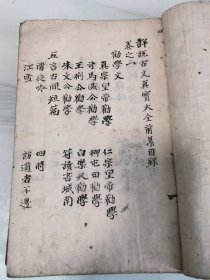 詳說古文真寶大全前集目錄
卷之一
勸學文
真宗皇帝勸學 仁宗皇帝勸學
司馬溫公勸學 柳屯田勸學
王荊公勸學 白樂天勸學
朱文公勸學 符讀書城南
五言古風短篇
清夜吟 四時
江雪 訪道者不遇